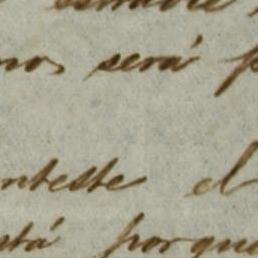 no, será p
nteste el
stá porque